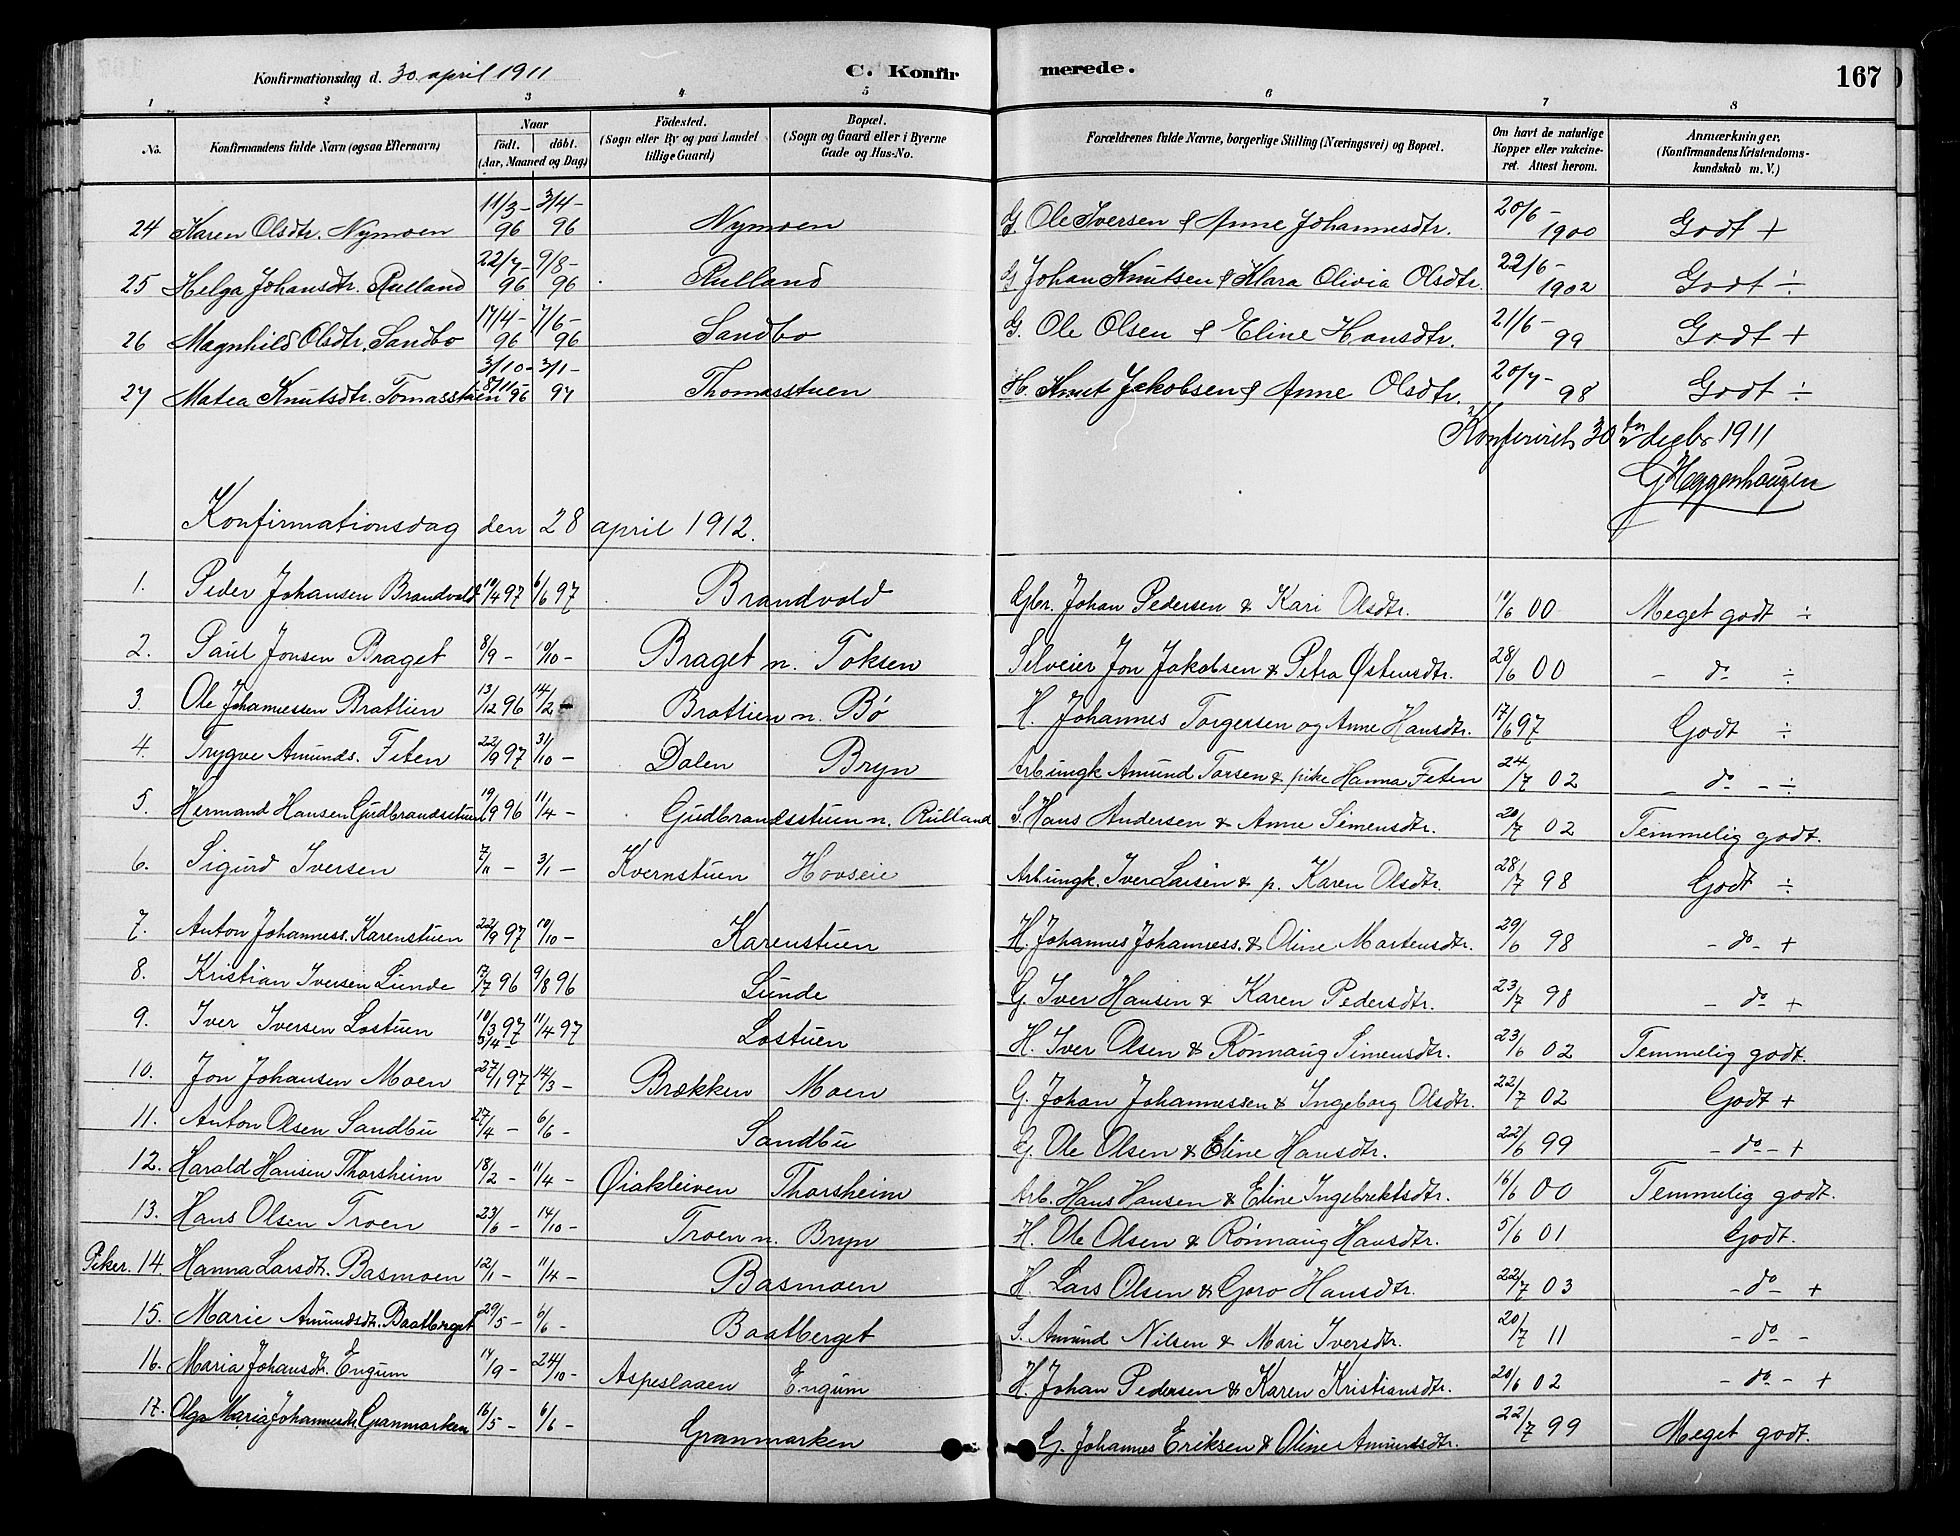 Konfirmationsdag d. 30. april 1911 C. Konfir merede. 167
1 2 3 4 5 6 7 8
No. Konfirmandens fulde Navn (ogsaa Efternavn) Naar født. døbt. (Aar, Maaned og Dag) Fødested. (Sogn eller By og paa Landet tillige Gaard) Bopæl. (Sogn og Gaard eller i Byerne Gade og Hus-No. Forældrenes fulde Navne, borgerlige Stilling (Næringsvei) og Bopæl. Om havt de naturlige Kopper eller vakcineret. Attest herom. Anmærkninger, (Konfirmandens Kristendomskundskab m. V.)
24 Karen Olsdtr. Nymoen 11/3-96 3/4-96 Nymoen G. Ole Iversen & Anne Johannesdtr. 20/6-1900 Godt +
25 Helga Johansdtr. Rulland 22/7-96 9/8-96 Rulland G Johan Knutsen & Klara Olivia Olsdtr. 22/6-1902 Godt ÷
26 Magnhild Olsdtr. Sandbo 17/4-96 7/6-96 Sandbo G. Ole Olsen & Eline Hansdtr. 21/6-99 Godt +
27 Matea Knutsdtr. Tomasstuen 3/10-8/11-96 3/1-97 Thomasstuen H. Knut Jakobsen & Anne Olsdtr. 20/7-98 Godt ÷
30 1911
G Heggenhougen
Konfirmationsdag den 28 april 1912.
1. Peder Johansen Brandvold 19/4 97 6/6 97 Brandvold Gbr. Johan Pedersen & Kari Olsdtr. 19/6 00 Meget godt ÷
2. Paul Jonsen Braget 8/9 - 10/10 - Braget n. Toksen Selveier Jon Jakobsen & Petra Østensdtr. 28/6 00 - do ÷
3. Ole Johannessen Brotlien 13/12 96 14/2 - Brotlien n. Bø H. Johannes Torgersen og Anne Hansdtr. 17/6 97 Godt ÷
4. Trygve Amunds. Feten 22/9 97 31/10 - Dalen Bryn Arb. ungk Amund Torsen & pike Hanna Feten 24/7 02 - do - ÷
5. Hermand Hansen Gudbrandsstuen 19/9 96 11/4 - Gudbrandsstuen n. Rulland S. Hans Andersen & Anne Simensdtr. 20/7 02 Temmelig godt.
6. Sigurd Iversen 7/11 - 3/1 - Kvernstuen Hovseie Arb. ungk. Iver Larsen & p. Karen Olsdtr. 28/7 98 Godt ÷
7. Anton Johanness. Karenstuen 22/9 97 10/10 - Karenstuen H. Johannes Johanness. & Oline Mortensdtr. 29/6 98 - do - +
8. Kristian Iversen Lunde 17/7 96 9/8 96 Lunde G. Iver Hansen & Karen Pedersdtr. 23/7 98 - do +
9. Iver Iversen Lostuen 10/3 97 5/4 - 11/4 97 Lostuen H. Iver Olsen & Rønnaug Simensdtr. 23/6 02 Temmelig godt.
10. Jon Johansen Moen 27/1 97 14/3 - Brækken Moen G. Johan Johannessen & Ingeborg Olsdtr. 22/7 02 Godt +
11. Anton Olsen Sandbu 27/4 - 6/6 - Sandbu G. Ole Olsen & Eline Hansdtr. 22/6 99 - do - +
12. Harald Hansen Thorsheim 18/2 - 11/4 - Øiakleiven Thorsheim Arb. Hans Hansen & Eline Ingebrektsdtr. 16/6 00 Temmelig godt.
13. Hans Olsen Troen 23/6 - 14/10 - Troen n. Bryn H. Ole Olsen & Rønnaug Hansdtr. 5/6 01 Godt.
Piker. 14. Hanna Larsdt. Basmoen 12/1 - 11/4 - Basmoen H Lars Olsen & Goro Hansdtr. 22/7 03 - do - +
15. Marie Amundsdt. Baatberget 29/5 - 6/6 - Baatberget S. Amund Nilsen & Mari Iversdtr. 20/7 11 - do -
16. Maria Johansdtr. Engum 14/9 - 24/10 - Aspeslaaen Engum H. Johan Pedersen & Karen Kristiansdtr. 20/6 02 - do - +
17. Olga Maria Johannesdtr. Granmarken 16/5 - 6/6 - Granmarken G. Johannes Eriksen & Oline Amundsdtr. 22/7 99 Meget godt.